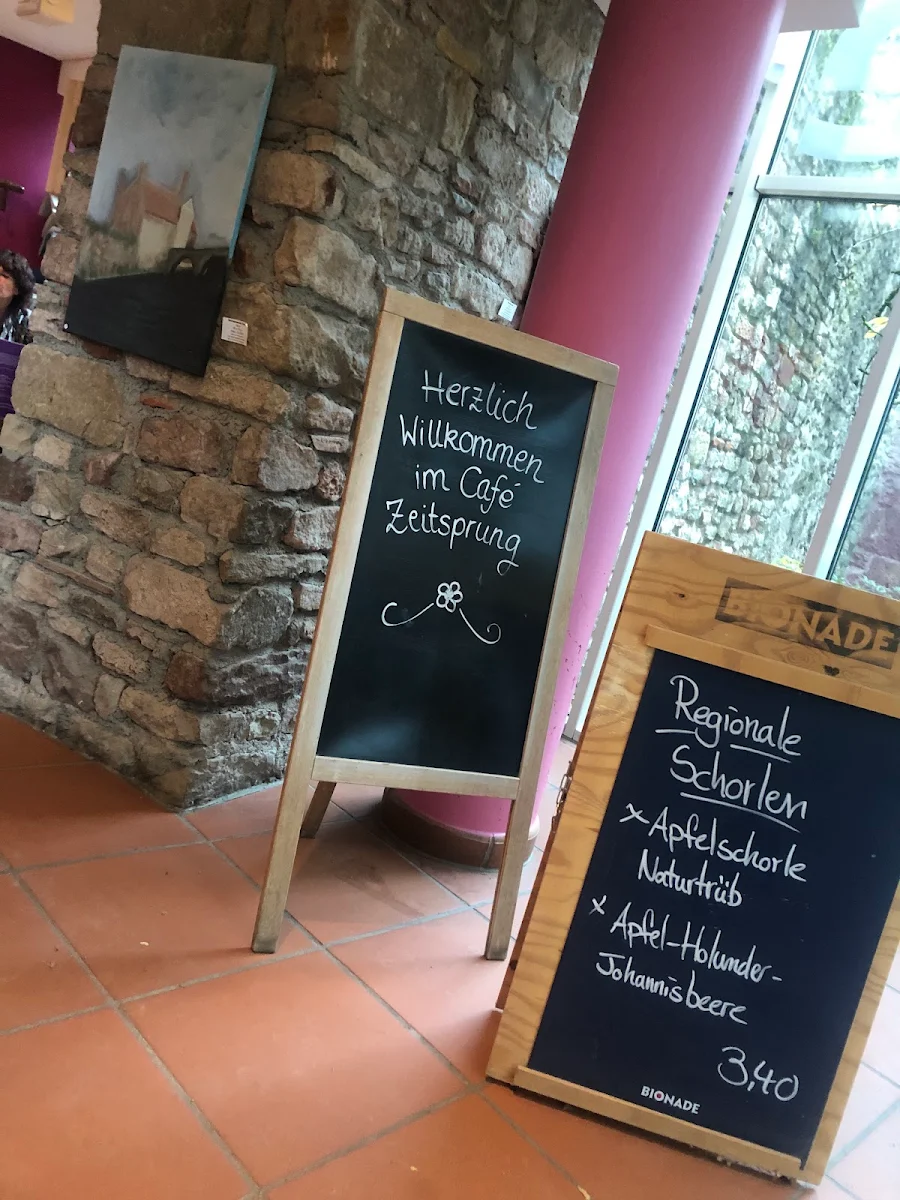 Herzlich
Willkommen
im Café
Zeitsprung
BIONADE
Regionale
Schorlen
x Apfelschorle
Naturtrüb
x Apfel-Holunder-
Johannisbeere
3,40
BIONADE